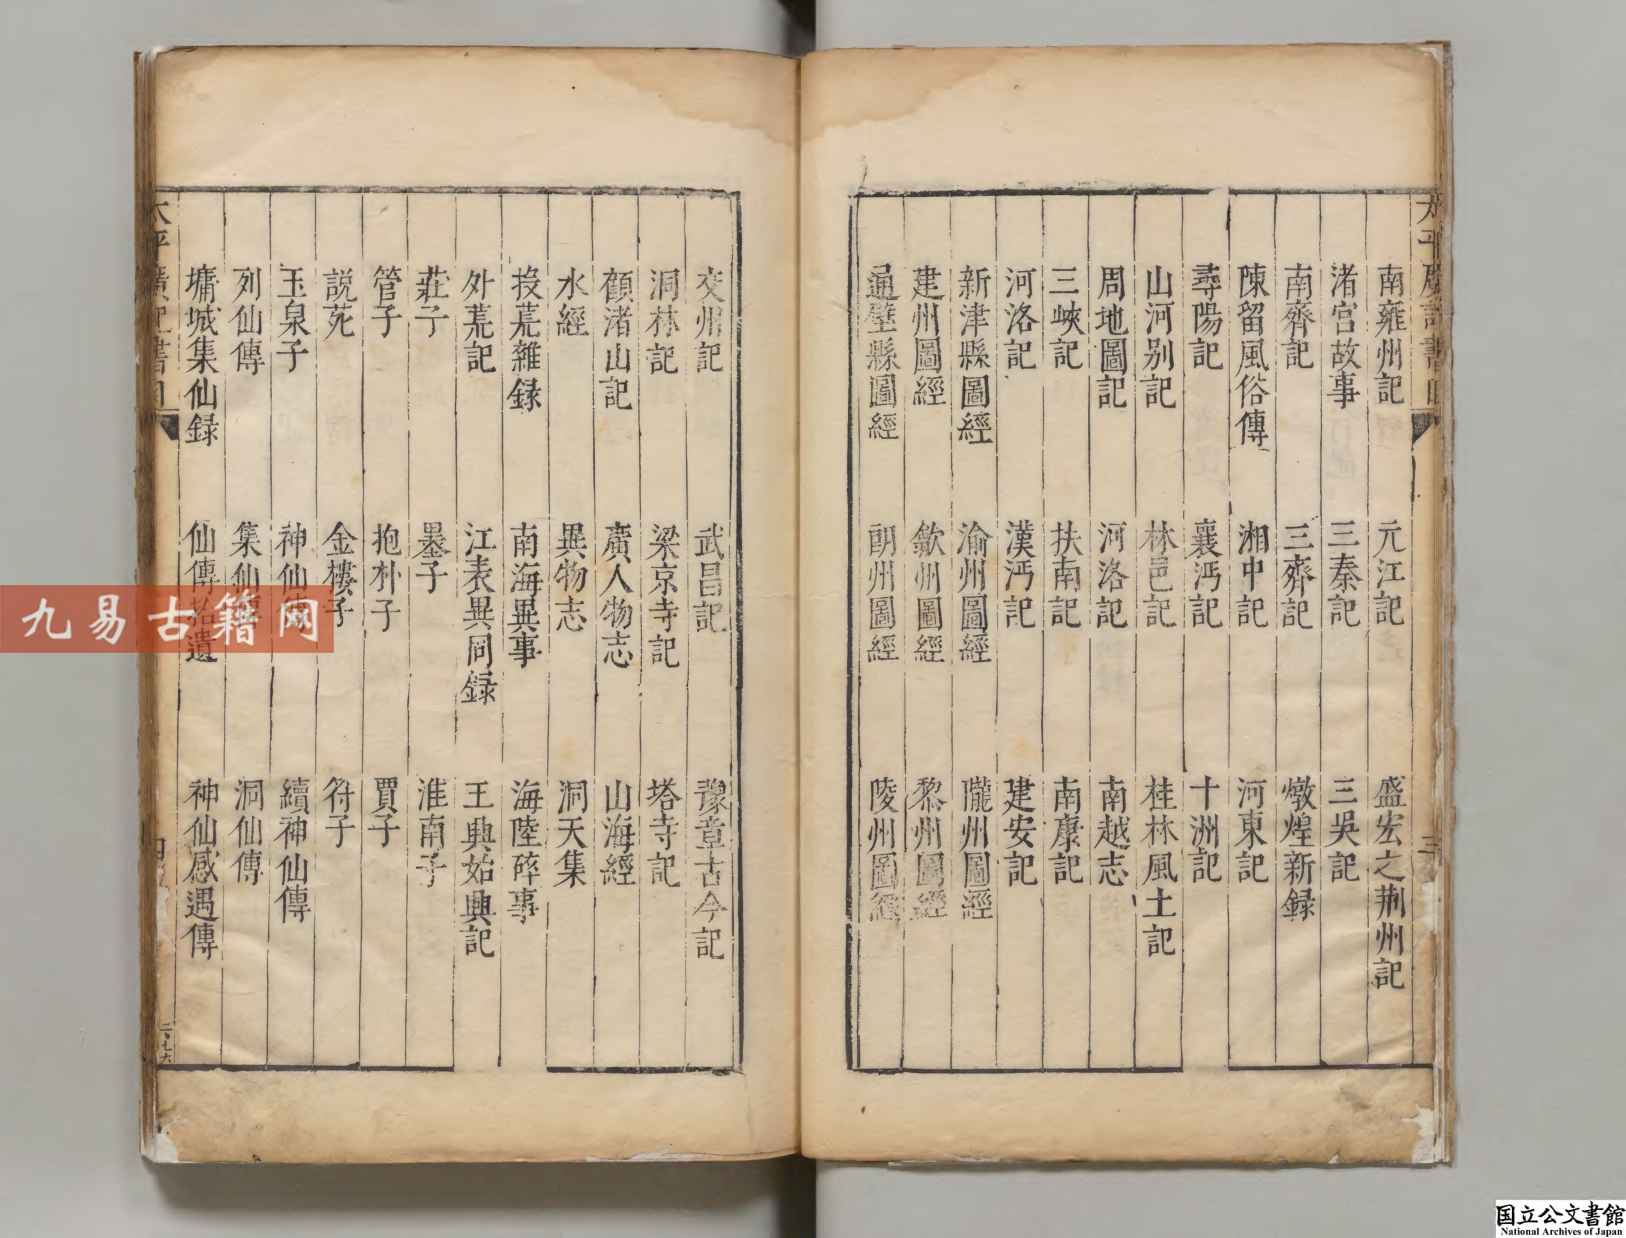 南雍州記 元江記 盛宏之荆州記
渚宮故事 三秦記 三吳記
南齊記 三齊記 燉煌新録
陳留風俗傳 湘中記 河東記
尋陽記 襄沔記 十洲記
山河别記 林邑記 桂林風土記
周地圖記 河洛記 南越志
三峽記 扶南記 南康記
河洛記 漢沔記 建安記
新津縣圖經 渝州圖經 隴州圖經
建州圖經 歙州圖經 黎州圖經
通壁縣圖經 朗州圖經 陵州圖經
交州記 武昌記 豫章古今記
洞林記 梁京寺記 塔寺記
顧渚山記 廣人物志 山海經
水經 異物志 洞天集
投荒雜録 南海異事 海陸碎事
外荒記 江表異同録 王歆始興記
莊子 墨子 淮南子
管子 抱朴子 賈子
説苑 金樓子 符子
玉泉子 神仙傳 續神仙傳
列仙傳 集仙傳 洞仙傳
墉城集仙録 仙傳拾遺 神仙感遇傳
太平廣記書目
九易古籍网
国立公文書館
National Archives of Japan